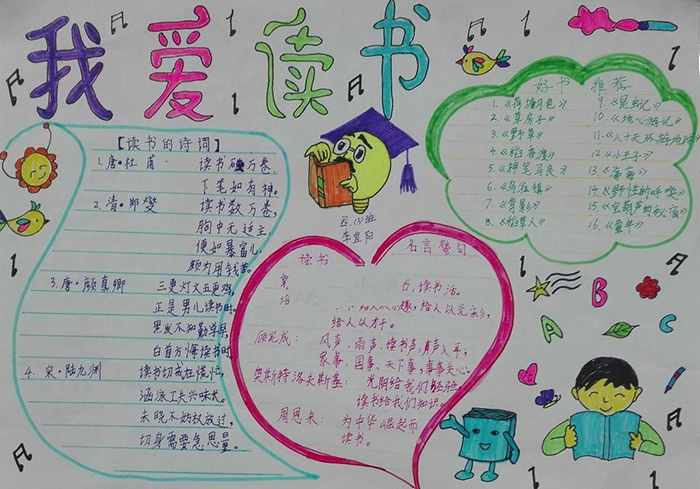 我爱读书
【读书的诗词】
1.唐·杜甫 读书破万卷,
下笔如有神。
2.清·郑燮 读书数万卷,
胸中无适主,
便如暴富儿,
颇为用钱苦。
3.唐·颜真卿 三更灯火五更鸡,
正是男儿读书时。
黑发不知勤学早,
白首方悔读书时
4.宋·陆九渊 读书切戒在慌忙,
涵泳工夫兴味长。
未晓不妨权放过,
切身需要急思量。
四.(3)班
李宜阳
读书 名言警句
力,读书活。
给人以光彩,
给人以才干。
顾宪成: 风声、雨声、读书声,声声入耳,
家事、国事、天下事,事事关心。
奥斯特洛夫斯基: 光阴给我们经验,
读书给我们知识。
周恩来: 为中华崛起而
读书。
好书 推荐
1.《荷塘月色》
2.《草房子》
3.《野草》
4.《稻香渡》
5.《神笔马良》
6.《乌雅镇》
7.《背影》
8.《稻草人》
9.《昆虫记》
10.《地心游记》
11.《八十天环游地球》
12.《小王子》
13.《青海》
14.《野性的呼唤》
15.《宝葫芦的秘密》
16.《童年》
A
B
C